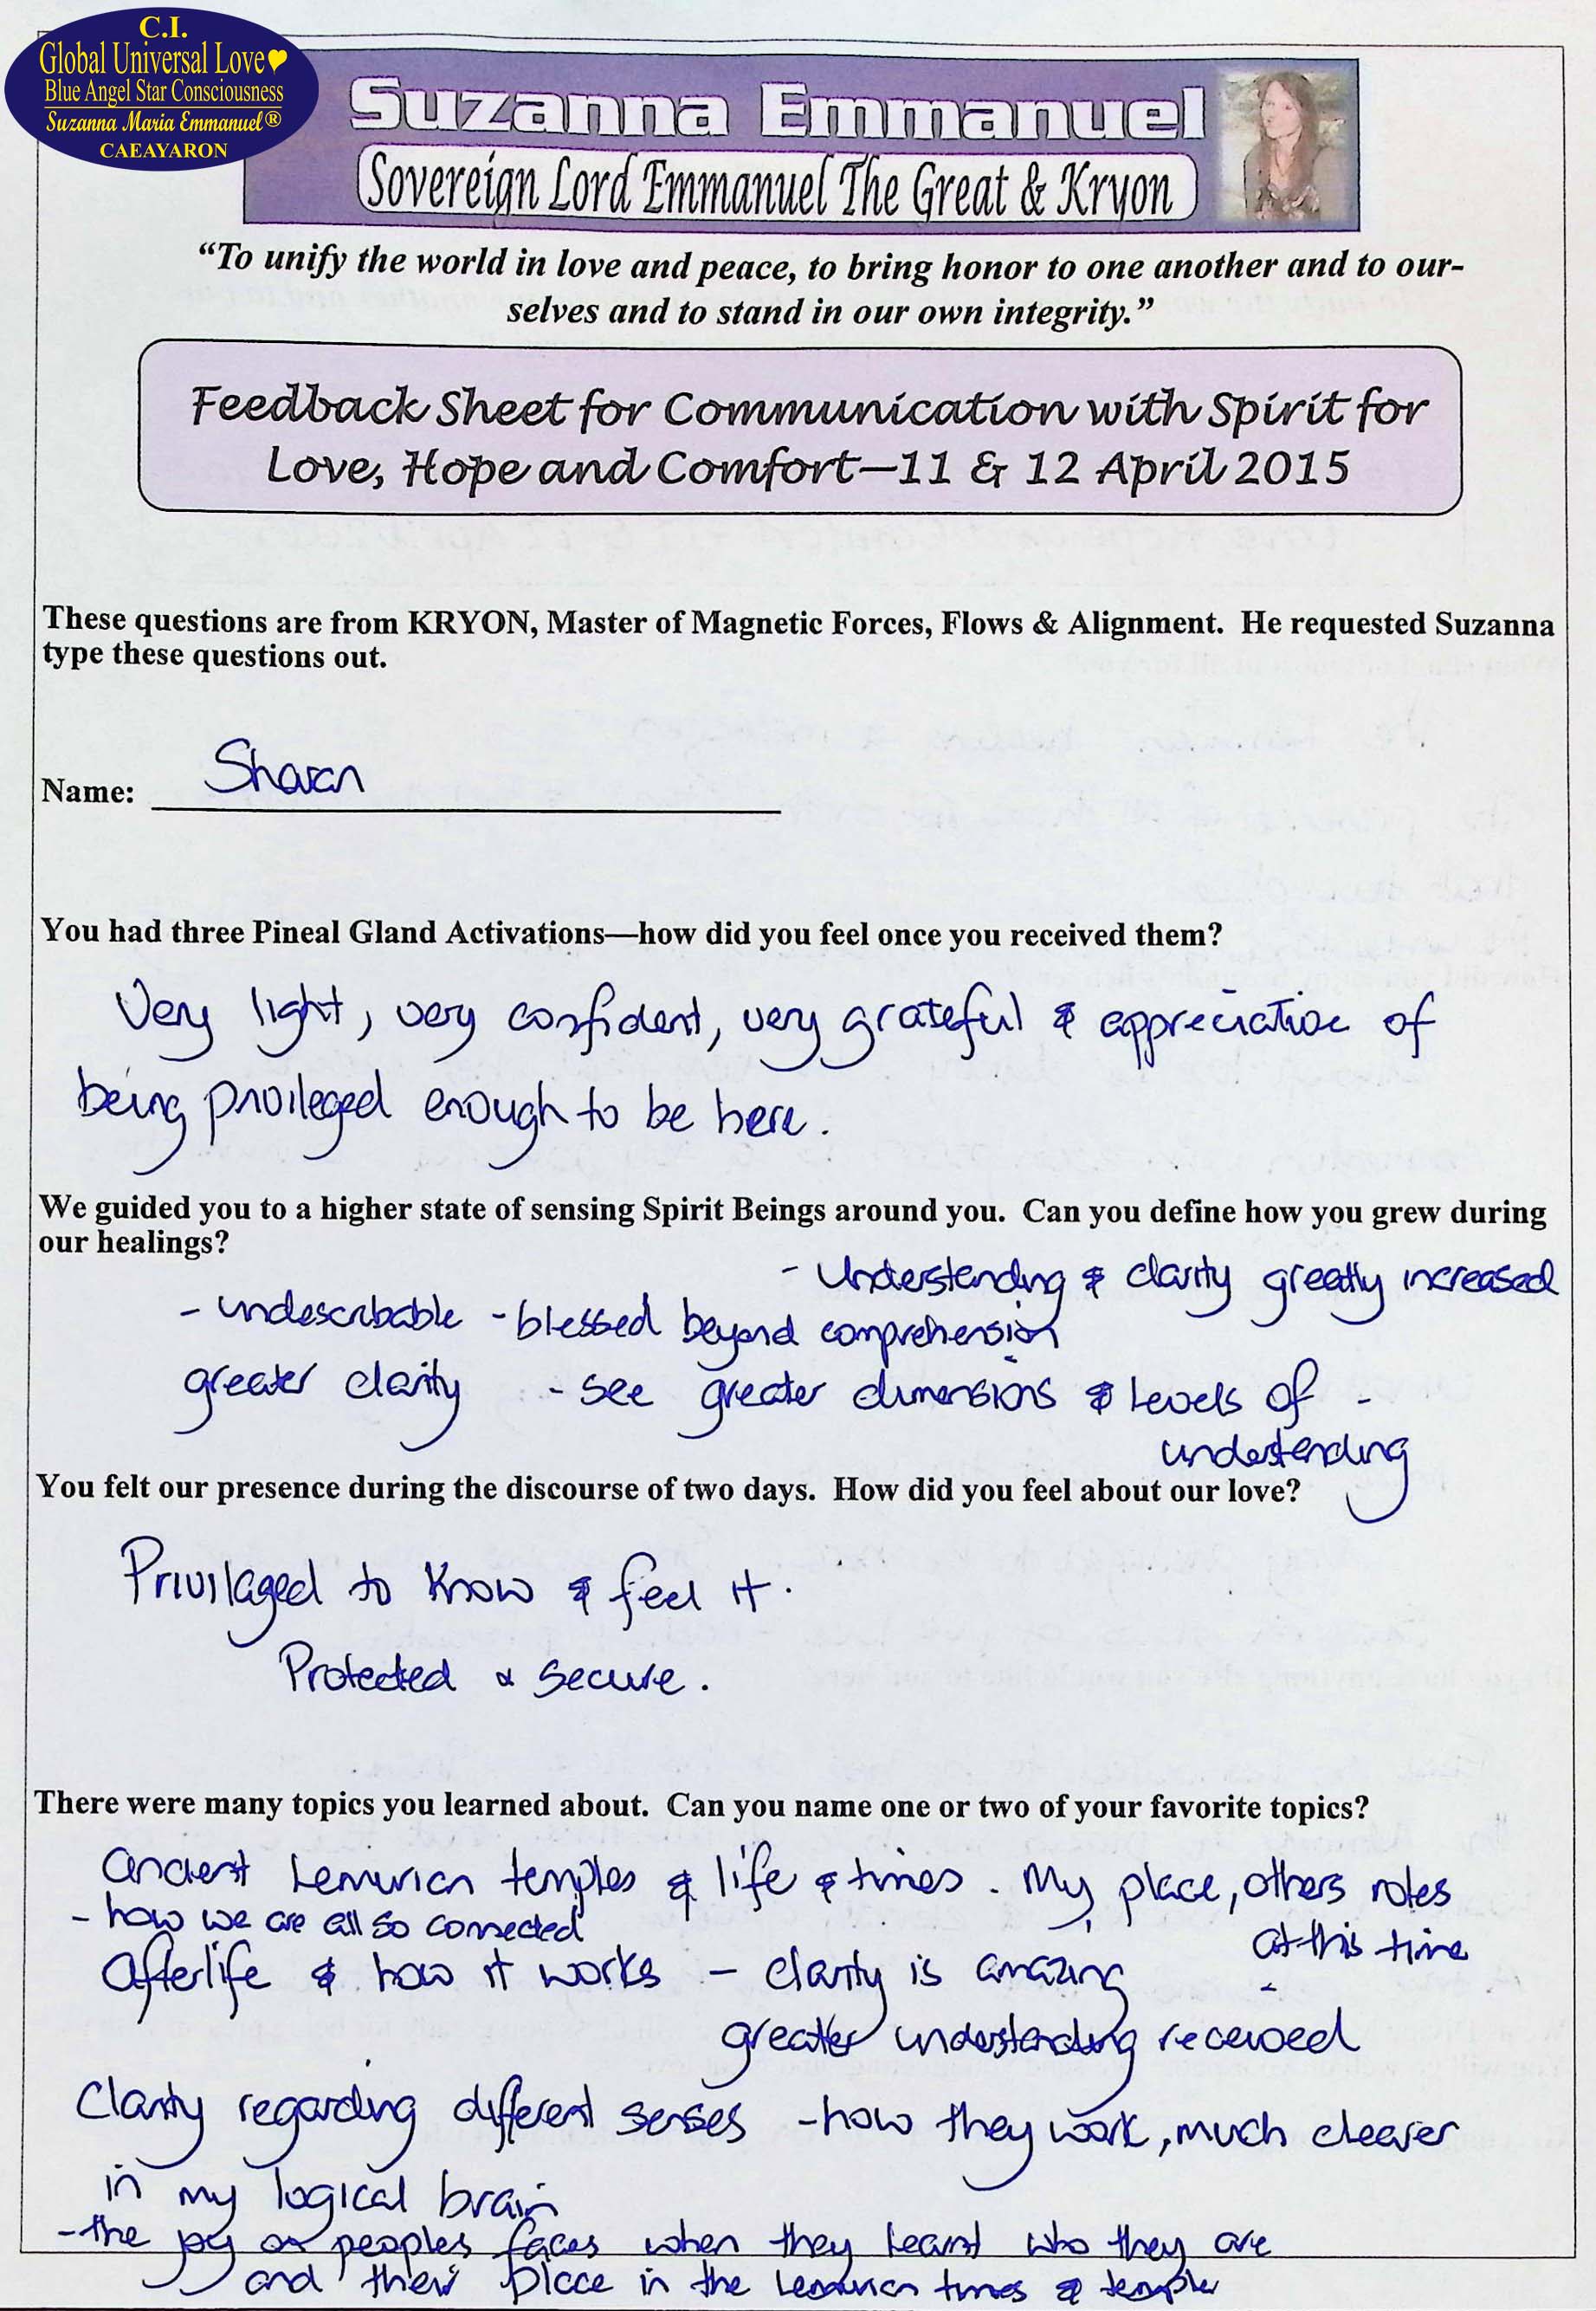 C.I.
Global Universal Love
Blue Angel Star Consciousness
Suzanna Maria Emmanuel®
CAEAYARON
Suzanna Emmanuel
Sovereign Lord Emmanuel The Great & Kryon
“To unify the world in love and peace, to bring honor to one another and to our-
selves and to stand in our own integrity.”
Feedback Sheet for Communication with Spirit for
Love, Hope and Comfort—11 & 12 April 2015
These questions are from KRYON, Master of Magnetic Forces, Flows & Alignment. He requested Suzanna
type these questions out.
Name: Sharan
You had three Pineal Gland Activations—how did you feel once you received them?
Very light, very confident, very grateful & appreciative of
being privileged enough to be here.
We guided you to a higher state of sensing Spirit Beings around you. Can you define how you grew during
our healings?
- Understanding & clarity greatly increased
- undescribable - blessed beyond comprehension
greater clarity - see greater dimensions & levels of -
understanding
You felt our presence during the discourse of two days. How did you feel about our love?
Privilaged to know & feel it.
Protected & secure.
There were many topics you learned about. Can you name one or two of your favorite topics?
ancient Lemurian temples & life & times. My place, others roles
at this time
- how we are all so connected
Afterlife & how it works - clarity is amazing
greater understanding received
Clarity regarding different senses - how they work, much clearer
in my logical brain
- the joy on peoples faces when they learnt who they are
and their place in the Lemurian times & temples